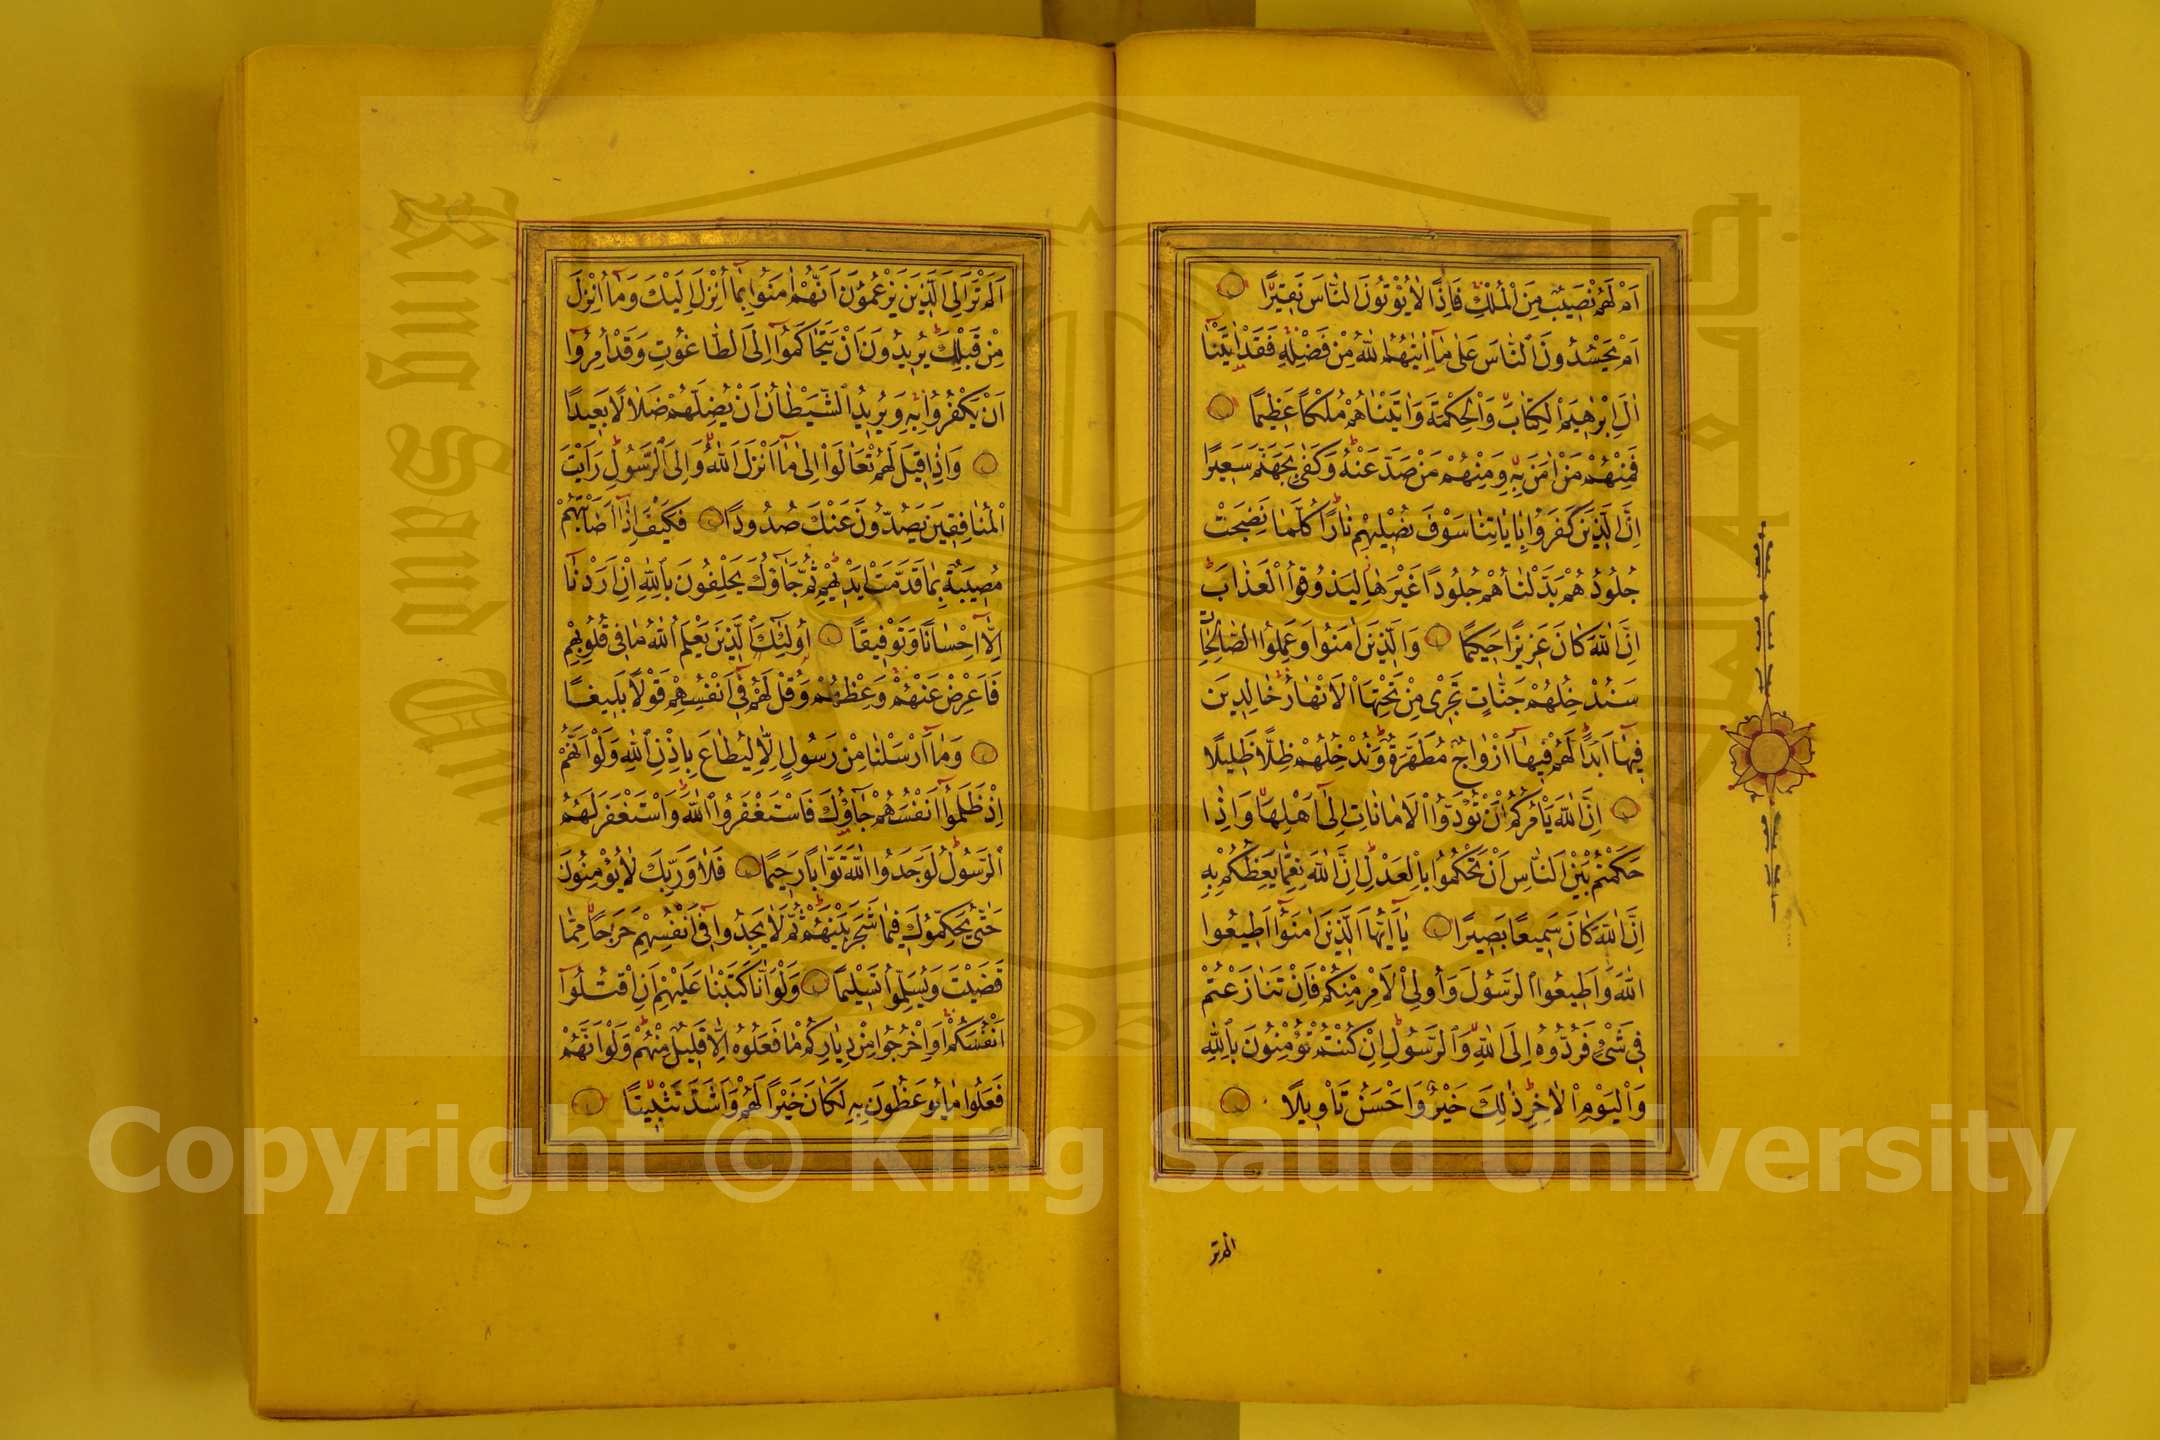 اَمْ لَهُمْ نَصِيبٌ مِنَ الْمُلْكِ فَاِذًا لَا يُؤْتُونَ النَّاسَ نَقِيرًا
اَمْ يَحْسُدُونَ النَّاسَ عَلٰى مَا اٰتٰيهُمُ اللّٰهُ مِنْ فَضْلِهِ فَقَدْ اٰتَيْنَا
اٰلَ اِبْرٰهِيمَ الْكِتَابَ وَالْحِكْمَةَ وَاٰتَيْنَاهُمْ مُلْكًا عَظِيمًا
فَمِنْهُمْ مَنْ اٰمَنَ بِهِ وَمِنْهُمْ مَنْ صَدَّ عَنْهُ وَكَفٰى بِجَهَنَّمَ سَعِيرًا
اِنَّ الَّذِينَ كَفَرُوا بِاٰيَاتِنَا سَوْفَ نُصْلِيهِمْ نَارًا كُلَّمَا نَضِجَتْ
جُلُودُهُمْ بَدَّلْنَاهُمْ جُلُودًا غَيْرَهَا لِيَذُوقُوا الْعَذَابَ
اِنَّ اللّٰهَ كَانَ عَزِيزًا حَكِيمًا وَالَّذِينَ اٰمَنُوا وَعَمِلُوا الصَّالِحَاتِ
سَنُدْخِلُهُمْ جَنَّاتٍ تَجْرِى مِنْ تَحْتِهَا الْاَنْهَارُ خَالِدِينَ
فِيهَا اَبَدًا لَهُمْ فِيهَا اَزْوَاجٌ مُطَهَّرَةٌ وَنُدْخِلُهُمْ ظِلًّا ظَلِيلًا
اِنَّ اللّٰهَ يَاْمُرُكُمْ اَنْ تُؤَدُّوا الْاَمَانَاتِ اِلٰى اَهْلِهَا وَاِذَا
حَكَمْتُمْ بَيْنَ النَّاسِ اَنْ تَحْكُمُوا بِالْعَدْلِ اِنَّ اللّٰهَ نِعِمَّا يَعِظُكُمْ بِهِ
اِنَّ اللّٰهَ كَانَ سَمِيعًا بَصِيرًا يَا اَيُّهَا الَّذِينَ اٰمَنُوا اَطِيعُوا
اللّٰهَ وَاَطِيعُوا الرَّسُولَ وَاُولِى الْاَمْرِ مِنْكُمْ فَاِنْ تَنَازَعْتُمْ
فِى شَىْءٍ فَرُدُّوهُ اِلَى اللّٰهِ وَالرَّسُولِ اِنْ كُنْتُمْ تُؤْمِنُونَ بِاللّٰهِ
وَالْيَوْمِ الْاٰخِرِ ذٰلِكَ خَيْرٌ وَاَحْسَنُ تَاْوِيلًا
الم تر
اَلَمْ تَرَ اِلَى الَّذِينَ يَزْعُمُونَ اَنَّهُمْ اٰمَنُوا بِمَا اُنْزِلَ اِلَيْكَ وَمَا اُنْزِلَ
مِنْ قَبْلِكَ يُرِيدُونَ اَنْ يَتَحَاكَمُوا اِلَى الطَّاغُوتِ وَقَدْ اُمِرُوا
اَنْ يَكْفُرُوا بِهِ وَيُرِيدُ الشَّيْطَانُ اَنْ يُضِلَّهُمْ ضَلَالًا بَعِيدًا
وَاِذَا قِيلَ لَهُمْ تَعَالَوْا اِلٰى مَا اَنْزَلَ اللّٰهُ وَاِلَى الرَّسُولِ رَاَيْتَ
الْمُنَافِقِينَ يَصُدُّونَ عَنْكَ صُدُودًا فَكَيْفَ اِذَا اَصَابَتْهُمْ
مُصِيبَةٌ بِمَا قَدَّمَتْ اَيْدِيهِمْ ثُمَّ جَاؤُكَ يَحْلِفُونَ بِاللّٰهِ اِنْ اَرَدْنَا
اِلَّا اِحْسَانًا وَتَوْفِيقًا اُولٰئِكَ الَّذِينَ يَعْلَمُ اللّٰهُ مَا فِى قُلُوبِهِمْ
فَاَعْرِضْ عَنْهُمْ وَعِظْهُمْ وَقُلْ لَهُمْ فِى اَنْفُسِهِمْ قَوْلًا بَلِيغًا
وَمَا اَرْسَلْنَا مِنْ رَسُولٍ اِلَّا لِيُطَاعَ بِاِذْنِ اللّٰهِ وَلَوْ اَنَّهُمْ
اِذْ ظَلَمُوا اَنْفُسَهُمْ جَاؤُكَ فَاسْتَغْفَرُوا اللّٰهَ وَاسْتَغْفَرَ لَهُمُ
الرَّسُولُ لَوَجَدُوا اللّٰهَ تَوَّابًا رَحِيمًا فَلَا وَرَبِّكَ لَا يُؤْمِنُونَ
حَتّٰى يُحَكِّمُوكَ فِيمَا شَجَرَ بَيْنَهُمْ ثُمَّ لَا يَجِدُوا فِى اَنْفُسِهِمْ حَرَجًا مِمَّا
قَضَيْتَ وَيُسَلِّمُوا تَسْلِيمًا وَلَوْ اَنَّا كَتَبْنَا عَلَيْهِمْ اَنِ اقْتُلُوا
اَنْفُسَكُمْ اَوِ اخْرُجُوا مِنْ دِيَارِكُمْ مَا فَعَلُوهُ اِلَّا قَلِيلٌ مِنْهُمْ وَلَوْ اَنَّهُمْ
فَعَلُوا مَا يُوعَظُونَ بِهِ لَكَانَ خَيْرًا لَهُمْ وَاَشَدَّ تَثْبِيتًا
King Saud University
1957
Copyright © King Saud University